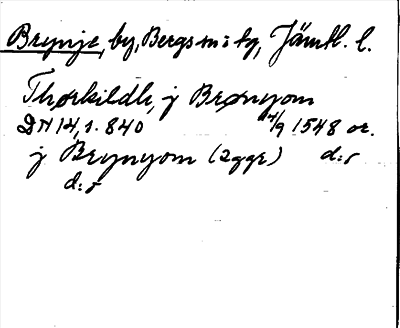 Brynje, by, Bergs sn o tg, Jämtl. l.
Thørkildh, j Brønyom
DN 14, 1. 840 4/9 1548 or.
j Brynyom (2 ggr) d:s
d:s